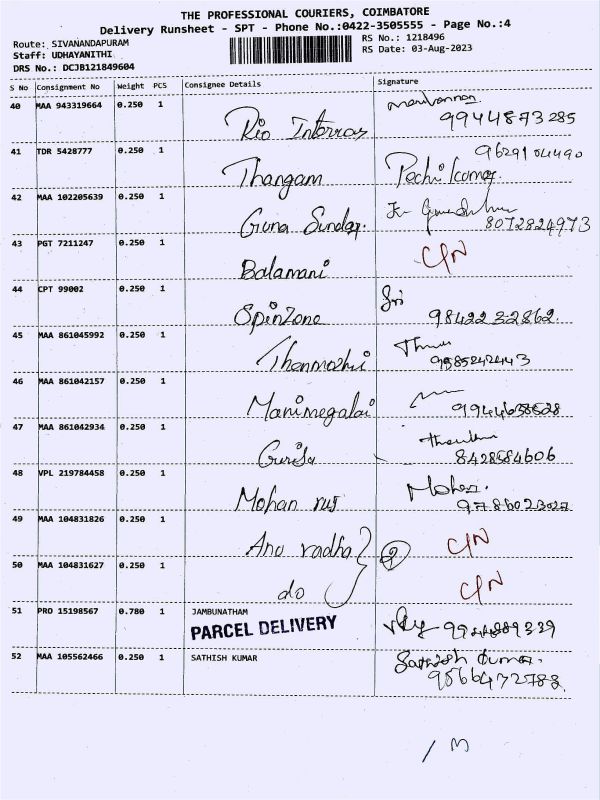 THE PROFESSIONAL COURIERS, COIMBATORE
Delivery Runsheet - SPT - Phone No.:0422-3505555 - Page No.:4
Route: SIVANANDAPURAM
Staff: UDHAYANITHI
DRS No.: DCJB121849604
RS No.: 1218496
RS Date: 03-Aug-2023
S No Consignment No Weight PCS Consignee Details Signature
40 MAA 943319664 0.250 1
Rio Interros
9944873285
41 TDR 5428777 0.250 1
9629104490
Thangam Pechi Kumar
42 MAA 102205639 0.250 1
Guna Sundar.
8072824973
43 PGT 7211247 0.250 1
Balamani C/N
44 CPT 99002 0.250 1
Sri
SpinZone 9842232862.
45 MAA 861045992 0.250 1
Thenmozhi 9585242443
46 MAA 861042157 0.250 1
Manimegalai
47 MAA 861042934 0.250 1
8428584606
48 VPL 219784458 0.250 1
Mohan raj Mohan.
9786023027
49 MAA 104831826 0.250 1
Anu radha 2 C/N
50 MAA 104831627 0.250 1
do C/N
51 PRO 15198567 0.780 1 JAMBUNATHAM
PARCEL DELIVERY
52 MAA 105562466 0.250 1 SATHISH KUMAR Sathish Kumar.
9566472788